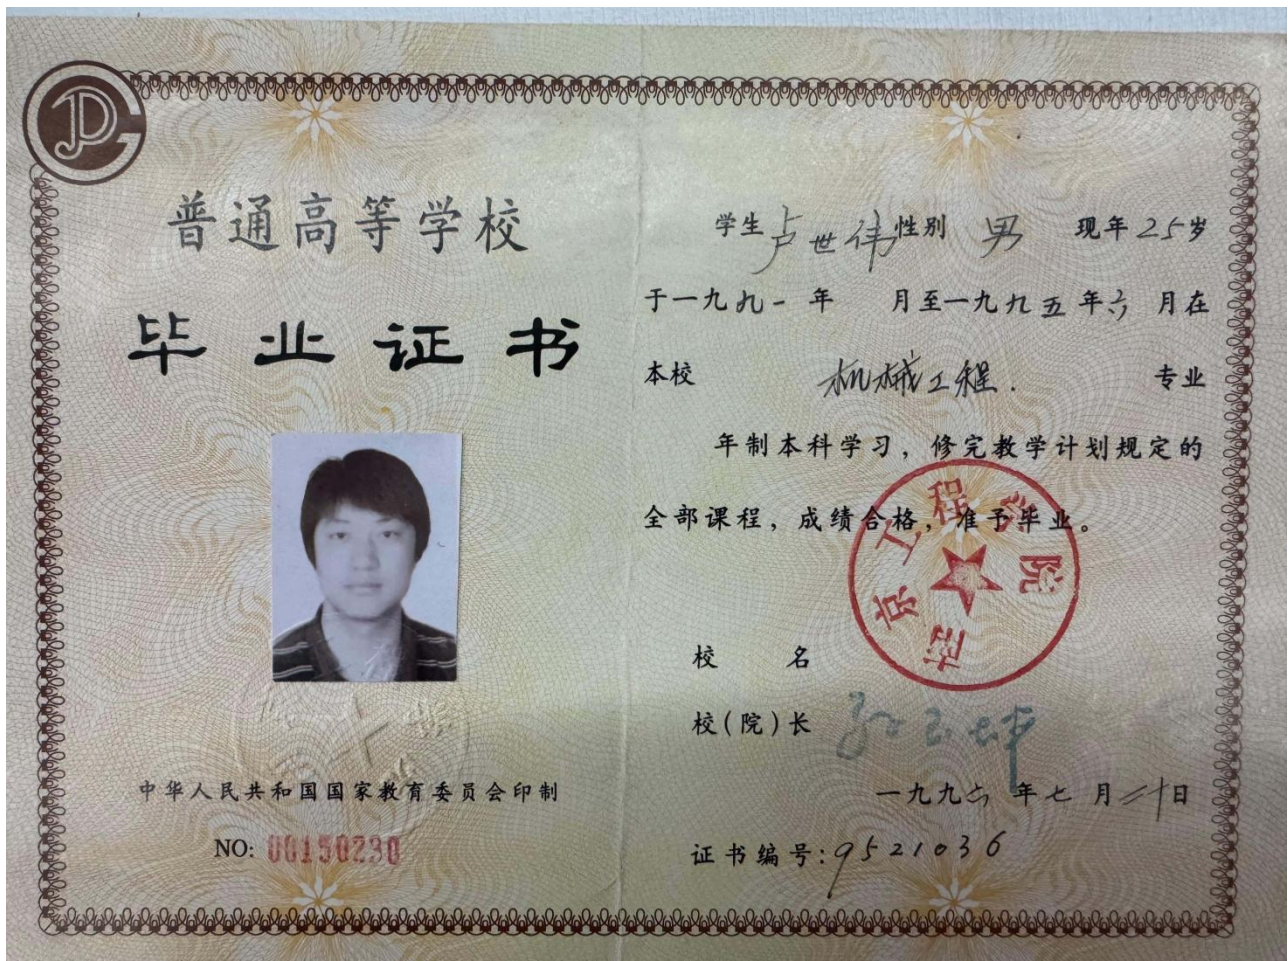 普通高等学校
毕业证书
中华人民共和国国家教育委员会印制
NO: 00150230
学生 卢世伟 性别 男 现年 25 岁
于一九九一年 月至一九九五年六月在
本校 机械工程. 专业
年制本科学习，修完教学计划规定的
全部课程，成绩合格，准予毕业。
南京工程学院
校 名
校(院)长
一九九六年七月二十日
证书编号:9521036